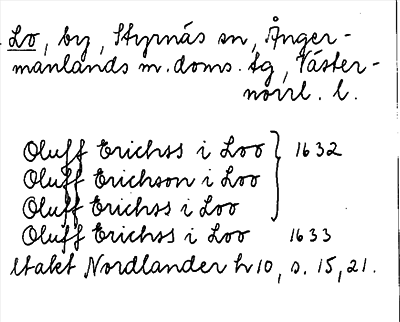 Lo, by, Styrnäs sn, Ånger-
manlands m. doms. tg, Väster-
norrl. l.
Oluff Erichss i Loo } 1632
Oluff Erichson i Loo
Oluff Erichss i Loo
Oluff Erichss i Loo 1633
Utakt Nordlander h 10, s. 15, 21.